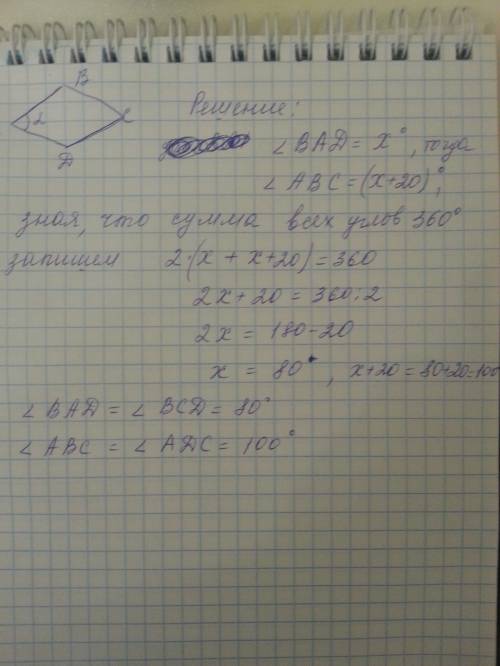 B
2 C
D
Решение:
∠BAD = x°, тогда
∠ABC = (x+20)°,
зная, что сумма всех углов 360°
запишем 2·(x + x+20) = 360
2x+20 = 360:2
2x = 180-20
x = 80°, x+20 = 80+20=100
∠BAD = ∠BCD = 80°
∠ABC = ∠ADC = 100°